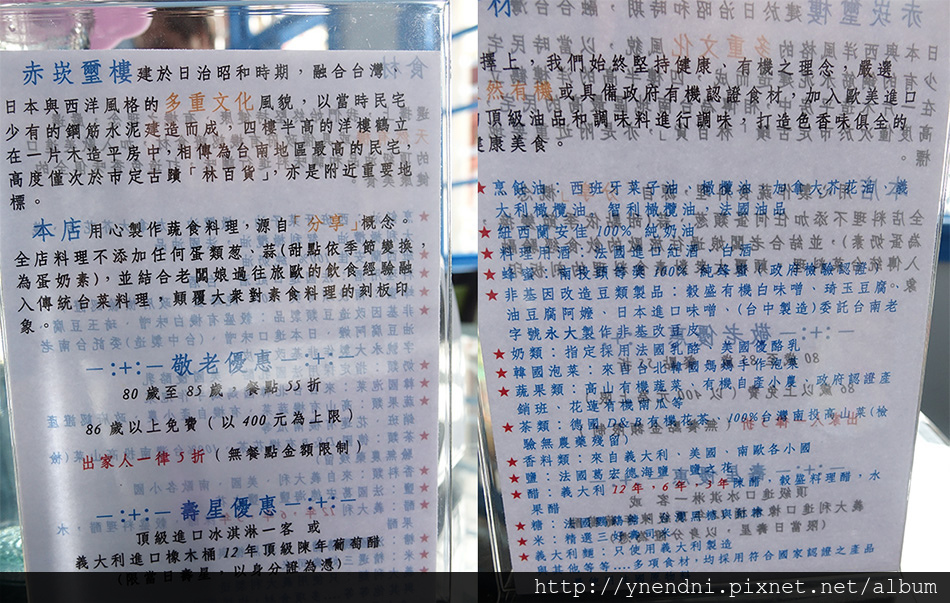 赤崁璽樓建於日治昭和時期，融合台灣，
日本與西洋風格的多重文化風貌，以當時民宅
少有的鋼筋水泥建造而成，四樓半高的洋樓鶴立
在一片木造平房中，相傳為台南地區最高的民宅，
高度僅次於市定古蹟「林百貨」，亦是附近重要地
標。
本店用心製作蔬食料理，源自「分享」概念，
全店料理不添加任何蛋類蔥、蒜(甜點依季節變換，
為蛋奶素)，並結合老闆娘過往旅歐的飲食經驗融
入傳統台菜料理，顛覆大衆對素食料理的刻板印
象。
—:+:— 敬老優惠 —:+:—
80歲至85歲，餐點55折
86歲以上免費（以400元為上限）
出家人一律5折（無餐點金額限制）
—:+:— 壽星優惠 —:+:—
頂級進口冰淇淋一客 或
義大利進口橡木桶12年頂級陳年葡萄醋
(限當日壽星，以身分證為憑)
材
擇上，我們始終堅持健康、有機之理念，嚴選
然有機或具備政府有機認證食材，加入歐美進口
頂級油品和調味料進行調味，打造色香味俱全的
健康美食。
★烹飪油：西班牙菜子油、橄欖油、加拿大芥花油、義
大利橄欖油、智利橄欖油、法國油品
★紐西蘭安佳100% 純奶油
★料理用酒：法國進口紅酒、白酒
★蜂蜜：南投縣特選100% 純蜂蜜(政府檢驗認證)
★非基因改造豆類製品：穀盛有機白味噌、琦玉豆腐、
油豆腐阿嬤、日本進口味噌、(台中製造)委託台南老
字號永大製作非基改豆皮
★奶類：指定採用法國乳酪、美國優酪乳
★韓國泡菜：來自台北韓國媽媽手作泡菜
★蔬果類：高山有機蔬菜、有機自產小農、政府認證產
銷班、花蓮有機南瓜等
★茶類：德國D&B有機花茶、100%台灣南投高山菜(檢
驗無農藥殘留)
★香料類：來自義大利、美國、南歐各小國
★鹽：法國葛宏德海鹽、鹽之花
★醋：義大利12年、6年、3年陳醋、穀盛料理醋、水
果醋
★糖：法國
★米：精選三好壽司米
★義大利麵：只使用義大利製造
與其他等等....多項食材，均採用符合國家認證之產品
http://ynendni.pixnet.net/album